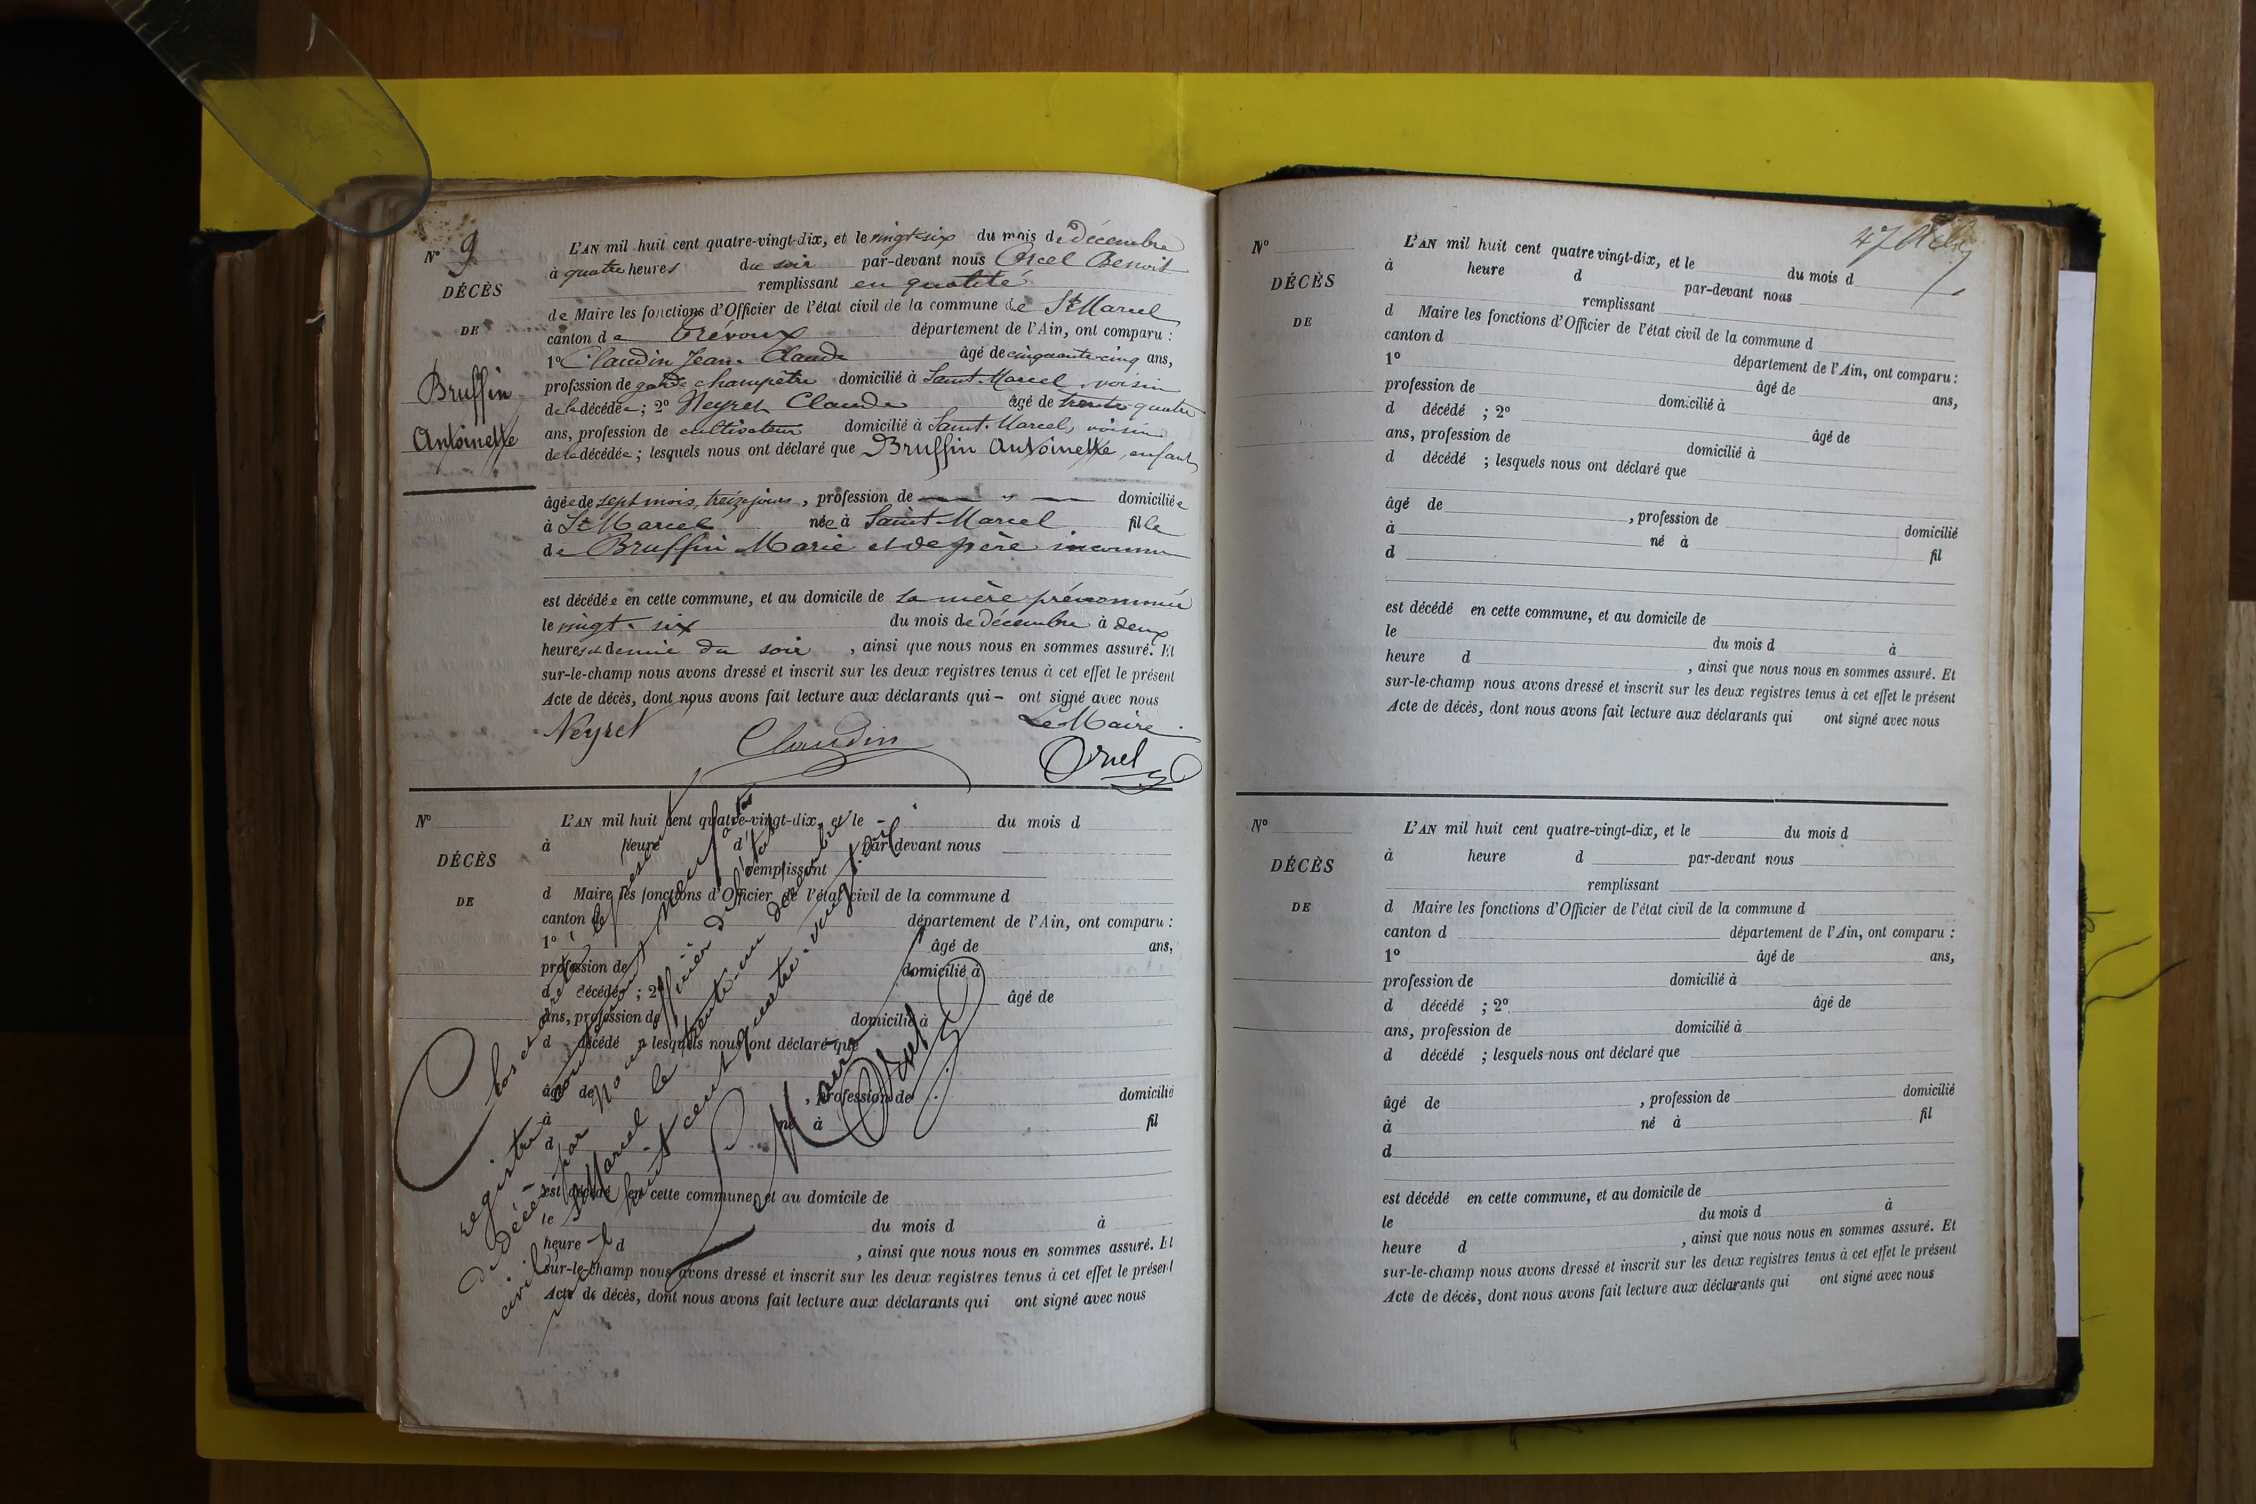 Nº 9
DÉCÈS
DE
Bruffin
Antoinette
L'AN mil huit cent quatre-vingt-dix, et le vingt-six du mois de décembre
à quatre heures du soir par-devant nous Orcel Benoit
remplissant en qualité
de Maire les fonctions d'Officier de l'état civil de la commune de St Marcel
canton de Trévoux département de l'Ain, ont comparu :
1º Claudin Jean Claude âgé de cinquante-cinq ans,
profession de garde champêtre domicilié à Saint-Marcel, voisin
de la décédée ; 2º Neyret Claude âgé de trente-quatre
ans, profession de cultivateur domicilié à Saint-Marcel, voisin
de la décédée ; lesquels nous ont déclaré que Bruffin Antoinette, enfant
âgée de sept mois, treize jours, profession de — " — domiciliée
à St Marcel née à Saint-Marcel fille
de Bruffin Marie et de père inconnu
est décédée en cette commune, et au domicile de sa mère prénommée
le vingt-six du mois de décembre à deux
heures et demie du soir , ainsi que nous nous en sommes assuré. Et
sur-le-champ nous avons dressé et inscrit sur les deux registres tenus à cet effet le présent
Acte de décès, dont nous avons fait lecture aux déclarants qui – ont signé avec nous
Le Maire
Neyret Claudin Orcel
Nº
DÉCÈS
DE
L'AN mil huit cent quatre-vingt-dix, et le du mois d
à heure d par-devant nous
remplissant
d Maire les fonctions d'Officier de l'état civil de la commune d
canton de département de l'Ain, ont comparu :
1º âgé de ans,
profession de domicilié à
d décédé ; 2º âgé de
ans, profession de domicilié à
d décédé ; lesquels nous ont déclaré que
âgé de , profession de domicilié
à né à fil
d
est décédé en cette commune, et au domicile de
le du mois d à
heure d , ainsi que nous nous en sommes assuré. Et
sur-le-champ nous avons dressé et inscrit sur les deux registres tenus à cet effet le présent
Acte de décès, dont nous avons fait lecture aux déclarants qui ont signé avec nous
Clos et arrêté le présent
registre contenant neuf actes
de décès par Nous officier de l'état
civil St Marcel le trente-un décembre
mil huit cent quatre-vingt-dix
Le Maire
Orcel
47
Nº
DÉCÈS
DE
L'AN mil huit cent quatre vingt-dix, et le du mois d
à heure d par-devant nous
remplissant
d Maire les fonctions d'Officier de l'état civil de la commune d
canton d département de l'Ain, ont comparu :
1º âgé de ans,
profession de domicilié à
d décédé ; 2º âgé de
ans, profession de domicilié à
d décédé ; lesquels nous ont déclaré que
âgé de , profession de domicilié
à né à fil
d
est décédé en cette commune, et au domicile de
le du mois d à
heure d , ainsi que nous nous en sommes assuré. Et
sur-le-champ nous avons dressé et inscrit sur les deux registres tenus à cet effet le présent
Acte de décès, dont nous avons fait lecture aux déclarants qui ont signé avec nous
Nº
DÉCÈS
DE
L'AN mil huit cent quatre-vingt-dix, et le du mois d
à heure d par-devant nous
remplissant
d Maire les fonctions d'Officier de l'état civil de la commune d
canton d département de l'Ain, ont comparu :
1º âgé de ans,
profession de domicilié à
d décédé ; 2º âgé de
ans, profession de domicilié à
d décédé ; lesquels nous ont déclaré que
âgé de , profession de domicilié
à né à fil
d
est décédé en cette commune, et au domicile de
le du mois d à
heure d , ainsi que nous nous en sommes assuré. Et
sur-le-champ nous avons dressé et inscrit sur les deux registres tenus à cet effet le présent
Acte de décès, dont nous avons fait lecture aux déclarants qui ont signé avec nous